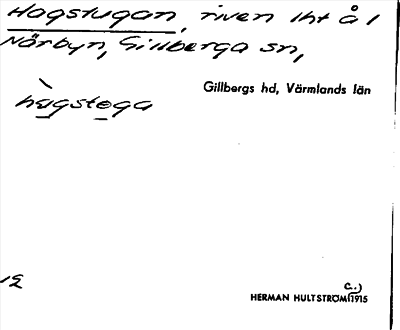 Hagstugan, riven lht å 1
Nörbyn, Gillberga sn,
Gillbergs hd, Värmlands län
hagstoga
HERMAN HULTSTRÖM (c.) 1915